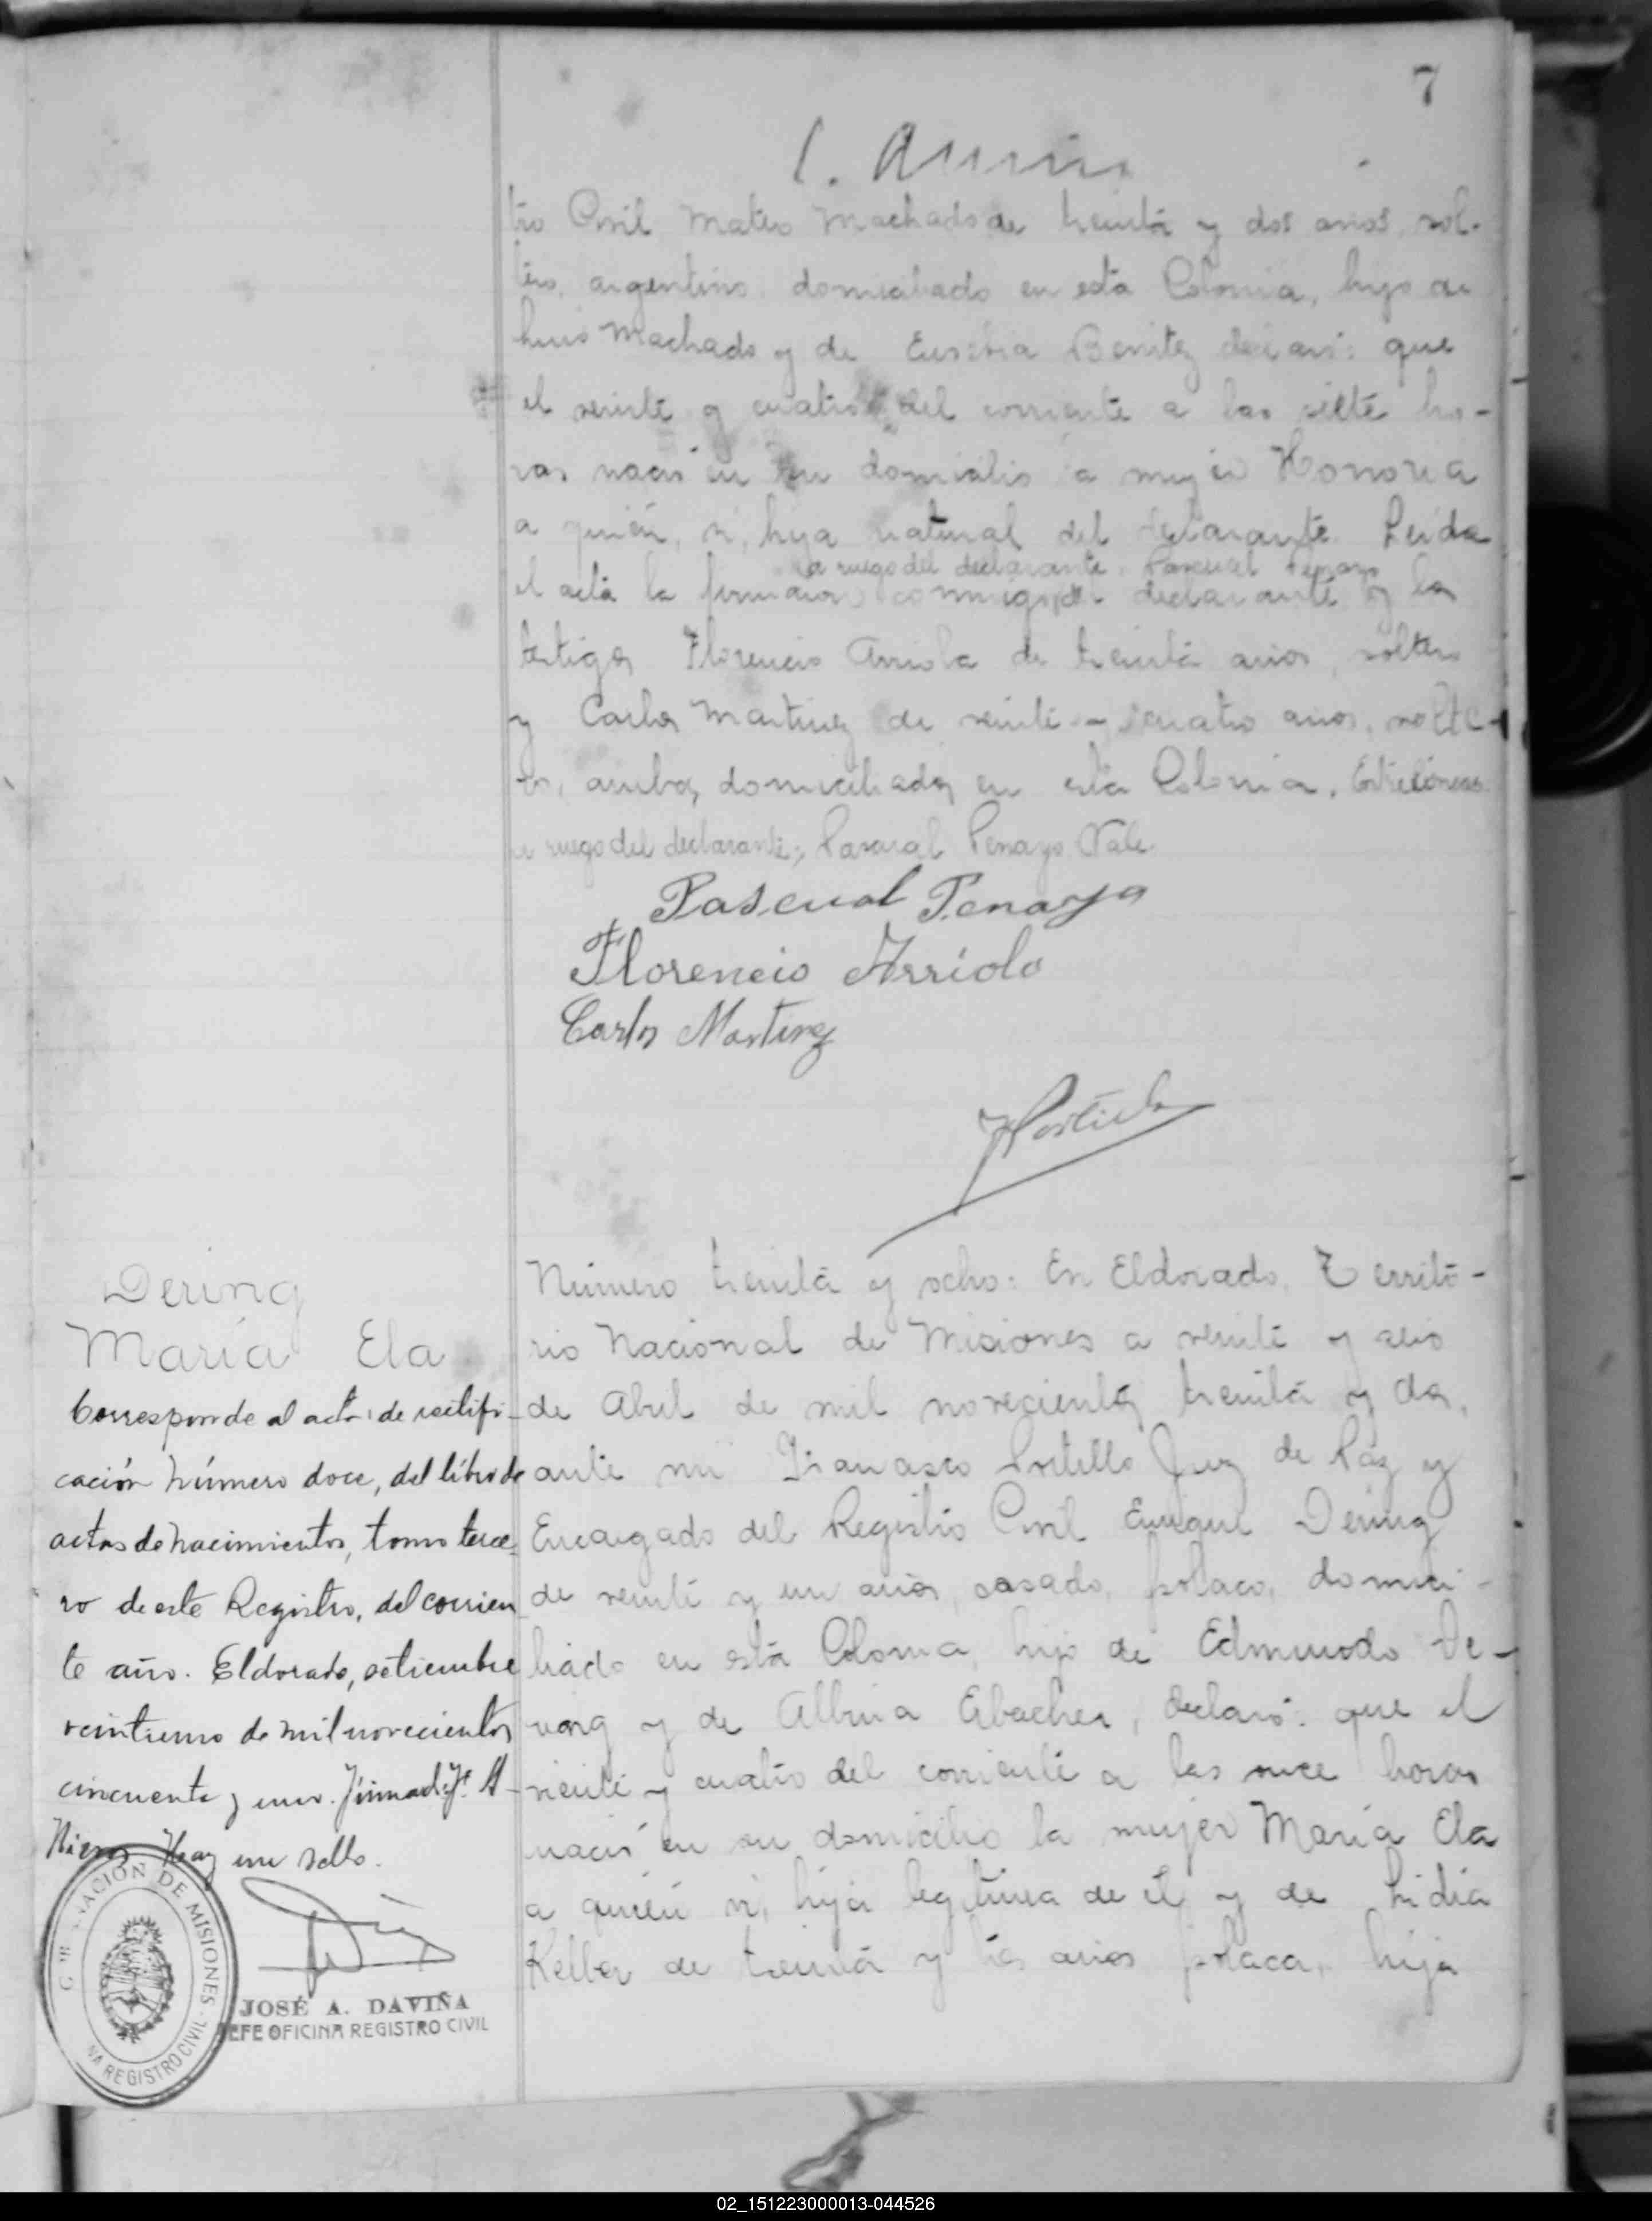 7
tro Civil Mateo Machado de treinta y dos años, sol-
tero, argentino domiciliado en esta Colonia, hijo de
Luis Machado y de Eusebia Benitez declaró: que
el veinte y cuatro del corriente a las siete ho-
ras nació en su domicilio la mujer Honoria
a quién vi, hija natural del declarante. Leida
a ruego del declarante, Pascual Penayo
el acta la firmaron conmigo, el declarante y los
testigos Florencio Arriola de treinta años, soltero
y Carlos Martinez de veinte y cuatro años, solte-
ro, ambos domiciliados en esta Colonia. Entrelíneas:
a ruego del declarante, Pascual Penayo Vale
Pascual Penayo
Florencio Arriola
Carlos Martinez
Dering
María Ela
Corresponde al acta de rectifi-
cación número doce, del libro de
actas de nacimientos, tomo terce-
ro de este Registro, del corrien-
te año. Eldorado, setiembre
veintiuno de mil novecientos
cincuenta y uno. Firmado:
Hay un sello.
NACION DE MISIONES
NA REGISTRO CIVIL
JOSÉ A. DAVIÑA
JEFE OFICINA REGISTRO CIVIL
Número treinta y ocho: En Eldorado, Territo-
rio Nacional de Misiones a veinte y seis
de Abril de mil novecientos treinta y dos,
ante mi Francisco Portillo Juez de Paz y
Encargado del Registro Civil Enrique Dering
de veinte y un años, casado, polaco, domici-
liado en esta Colonia, hijo de Edmundo De-
ring y de Albina Ebacher, declaró: que el
veinte y cuatro del corriente a las once horas
nació en su domicilio la mujer María Ela
a quién vi, hija legitima de él y de Lidia
Keller de treinta y tres años polaca, hija
02_151223000013-044526